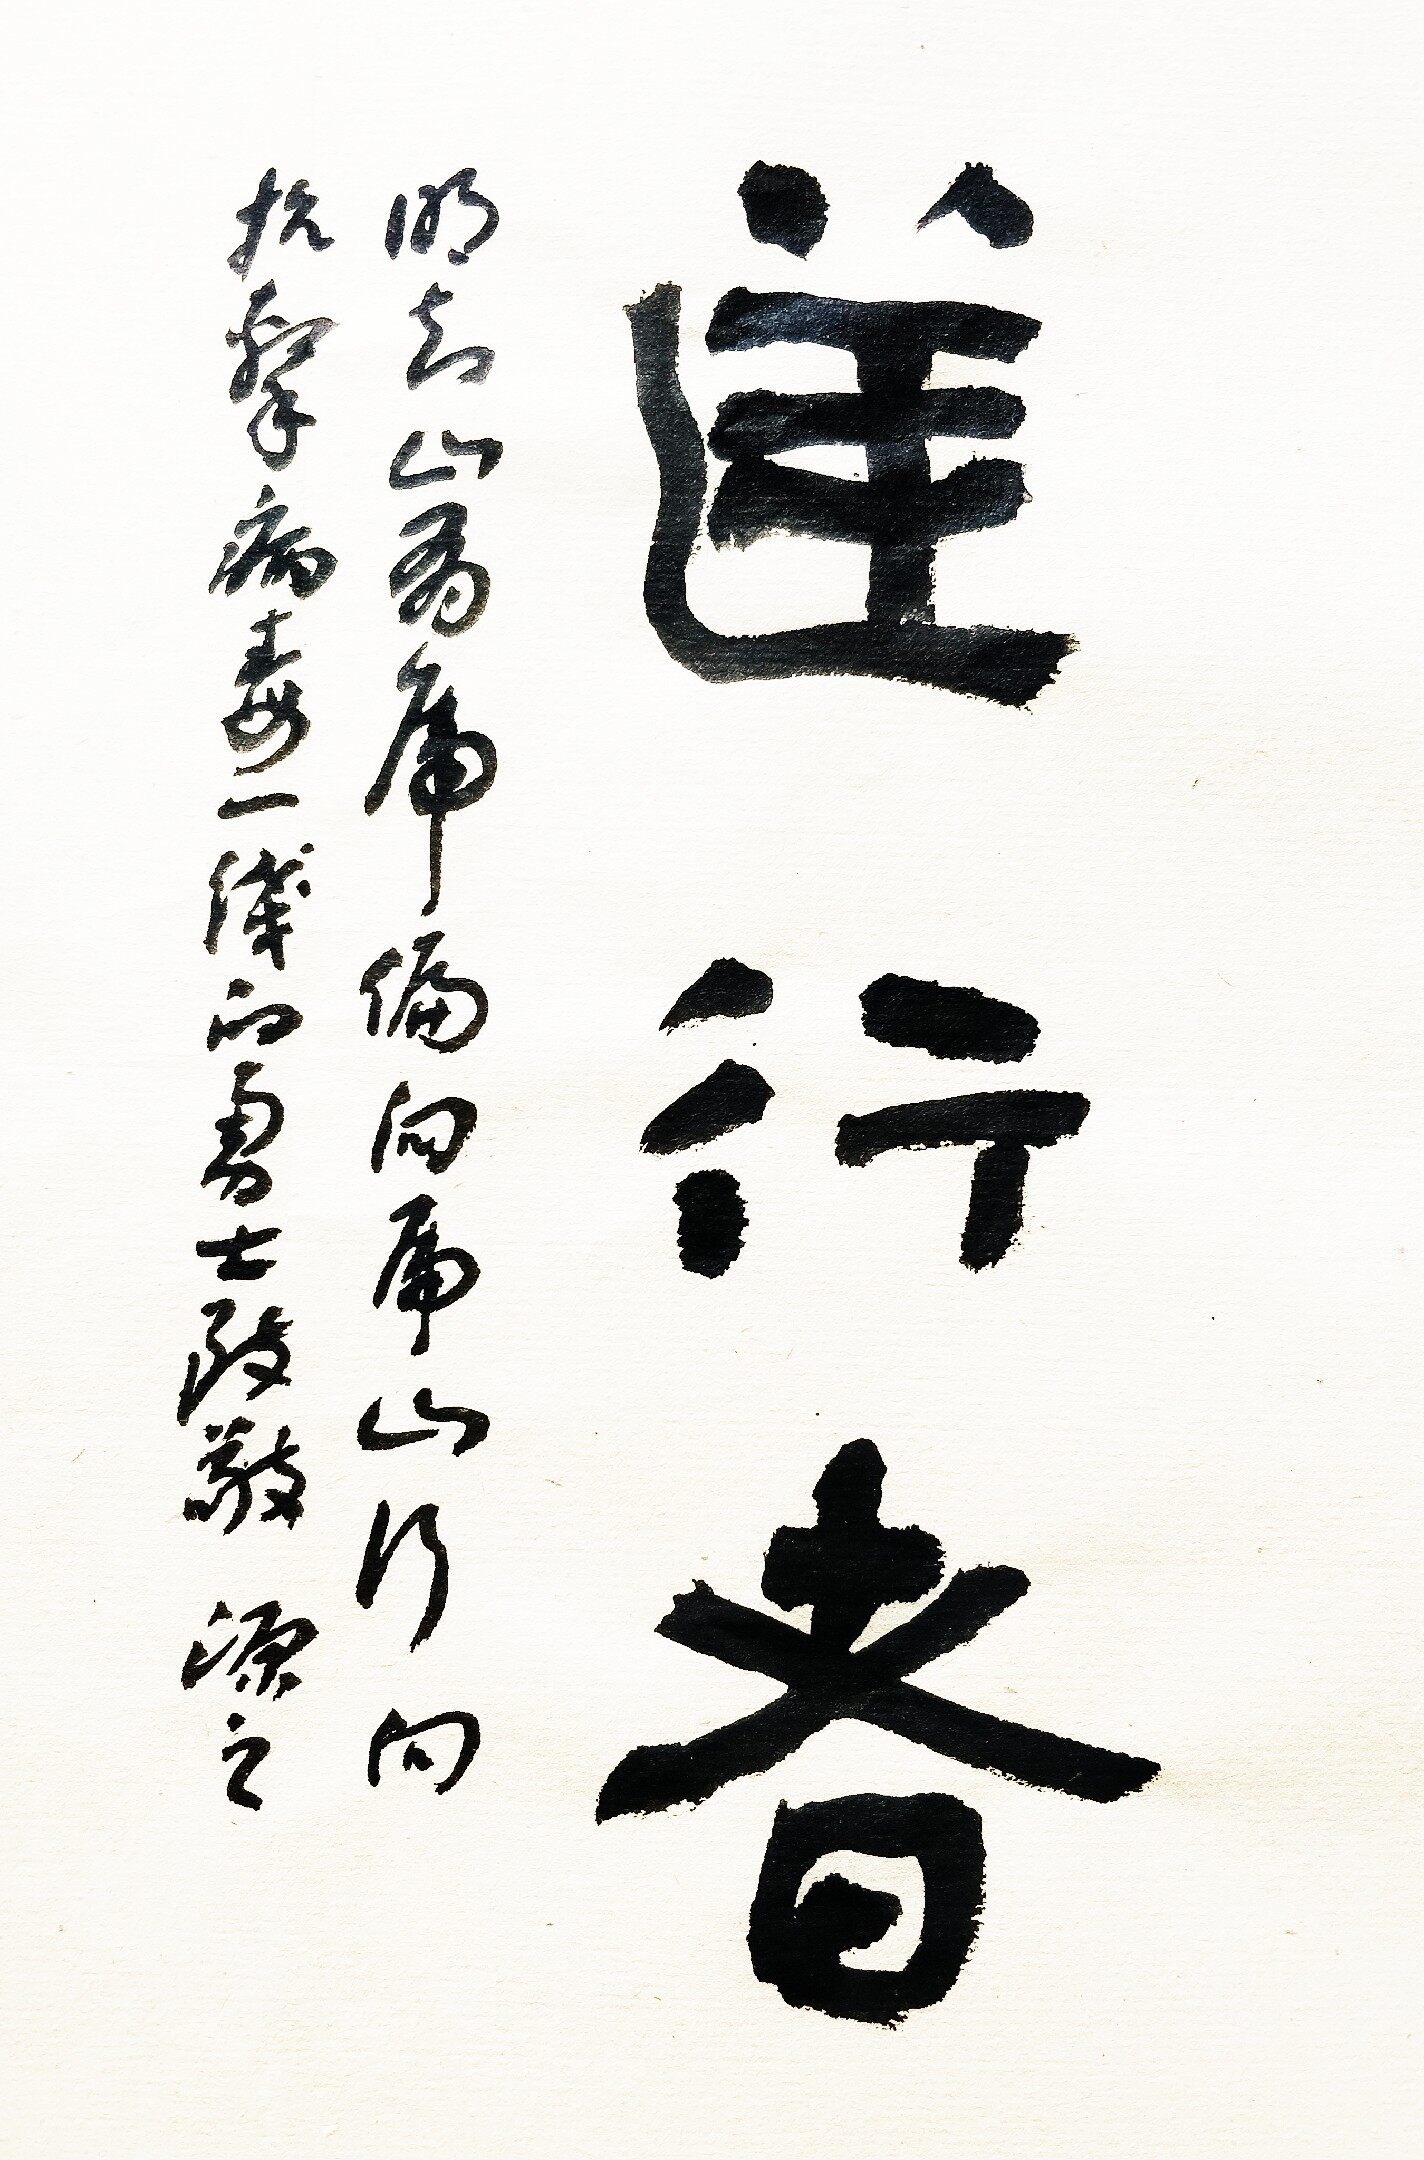 逆行者
明知山有虎偏向虎山行向
抗擊病毒一綫的勇士致敬 源之